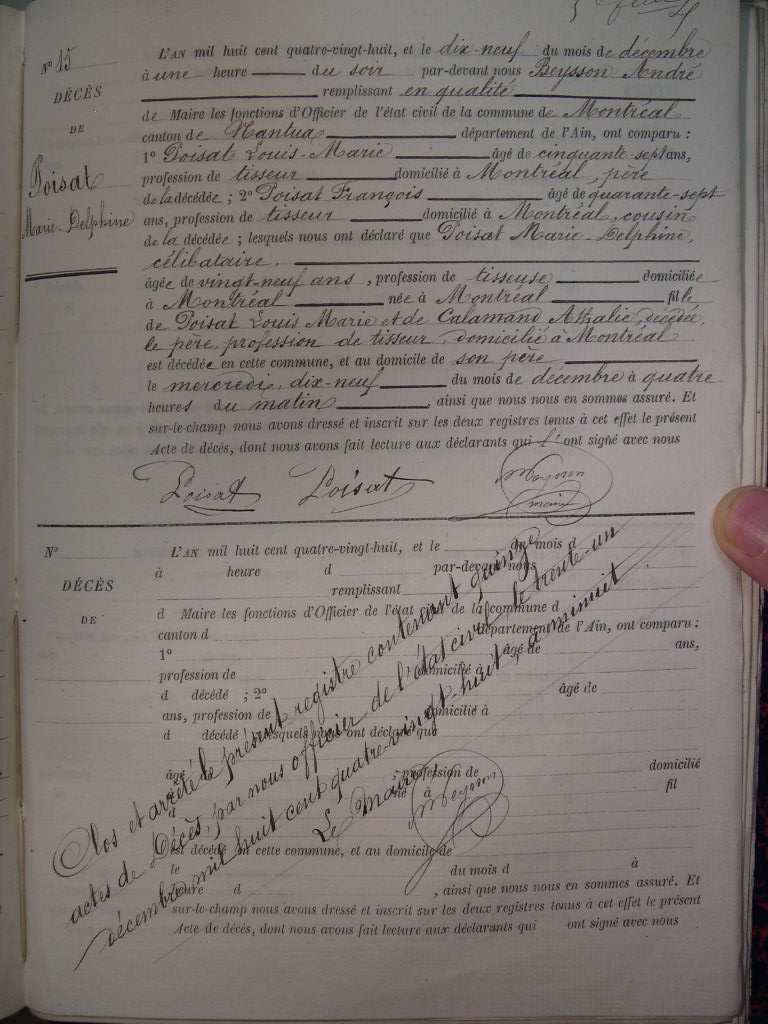 No 15
DÉCÈS
DE
Poisat
Marie-Delphine
L'AN mil huit cent quatre-vingt-huit, et le dix-neuf du mois de décembre
à une heure du soir par-devant nous Beysson André
remplissant en qualité
de Maire les fonctions d'Officier de l'état civil de la commune de Montréal
canton de Nantua département de l'Ain, ont comparu :
1° Poisat Louis-Marie âgé de cinquante-sept ans,
profession de tisseur domicilié à Montréal, père
de la décédée ; 2° Poisat François âgé de quarante-sept
ans, profession de tisseur domicilié à Montréal, cousin
de la décédée ; lesquels nous ont déclaré que Poisat Marie-Delphine,
célibataire.
âgée de vingt-neuf ans, profession de tisseuse domiciliée
à Montréal née à Montréal fille
de Poisat Louis Marie et de Calamand Athalie, décédée,
le père, profession de tisseur, domicilié à Montréal
est décédée en cette commune, et au domicile de son père,
le mercredi, dix-neuf du mois de décembre à quatre
heures du matin, ainsi que nous nous en sommes assuré. Et
sur-le-champ nous avons dressé et inscrit sur les deux registres tenus à cet effet le présent
Acte de décès, dont nous avons fait lecture aux déclarants qui l'ont signé avec nous
Poisat Poisat
No
DÉCÈS
DE
L'AN mil huit cent quatre-vingt-huit, et le du mois d
à heure d par-devant nous
remplissant
d Maire les fonctions d'Officier de l'état civil de la commune d
canton d département de l'Ain, ont comparu :
1° âgé de ans,
profession de domicilié à
d décédé ; 2° âgé de
ans, profession de domicilié à
d décédé ; lesquels nous ont déclaré que
âgé , profession de domicilié
à né à fil
d
est décédé en cette commune, et au domicile de
le du mois d à
heure d , ainsi que nous nous en sommes assuré. Et
sur-le-champ nous avons dressé et inscrit sur les deux registres tenus à cet effet le présent
Acte de décès, dont nous avons fait lecture aux déclarants qui ont signé avec nous
Clos et arrêté le présent registre contenant quinze
actes de Décès, par nous officier de l'état civil, le trente-un
décembre mil huit cent quatre-vingt-huit, à minuit.
Le Maire